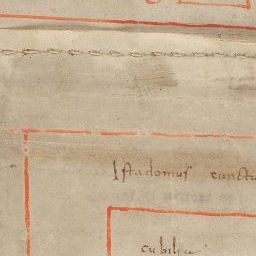 Istadomus cunctu
cubilia